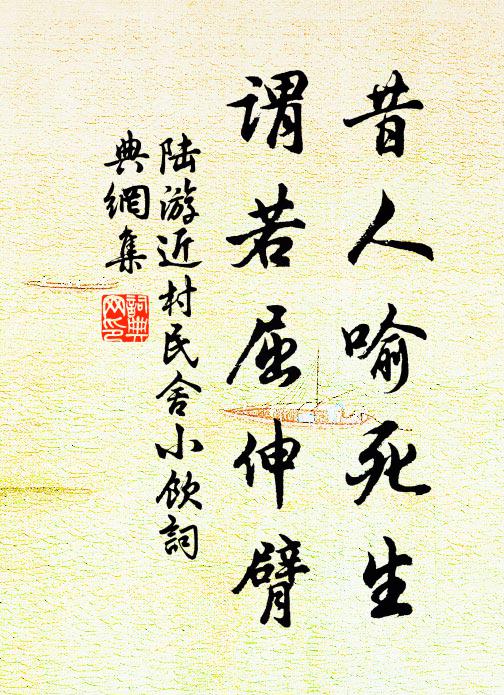 昔人喻死生
谓若屈伸臂
陆游近村民舍小饮词
典網集
詞典網印